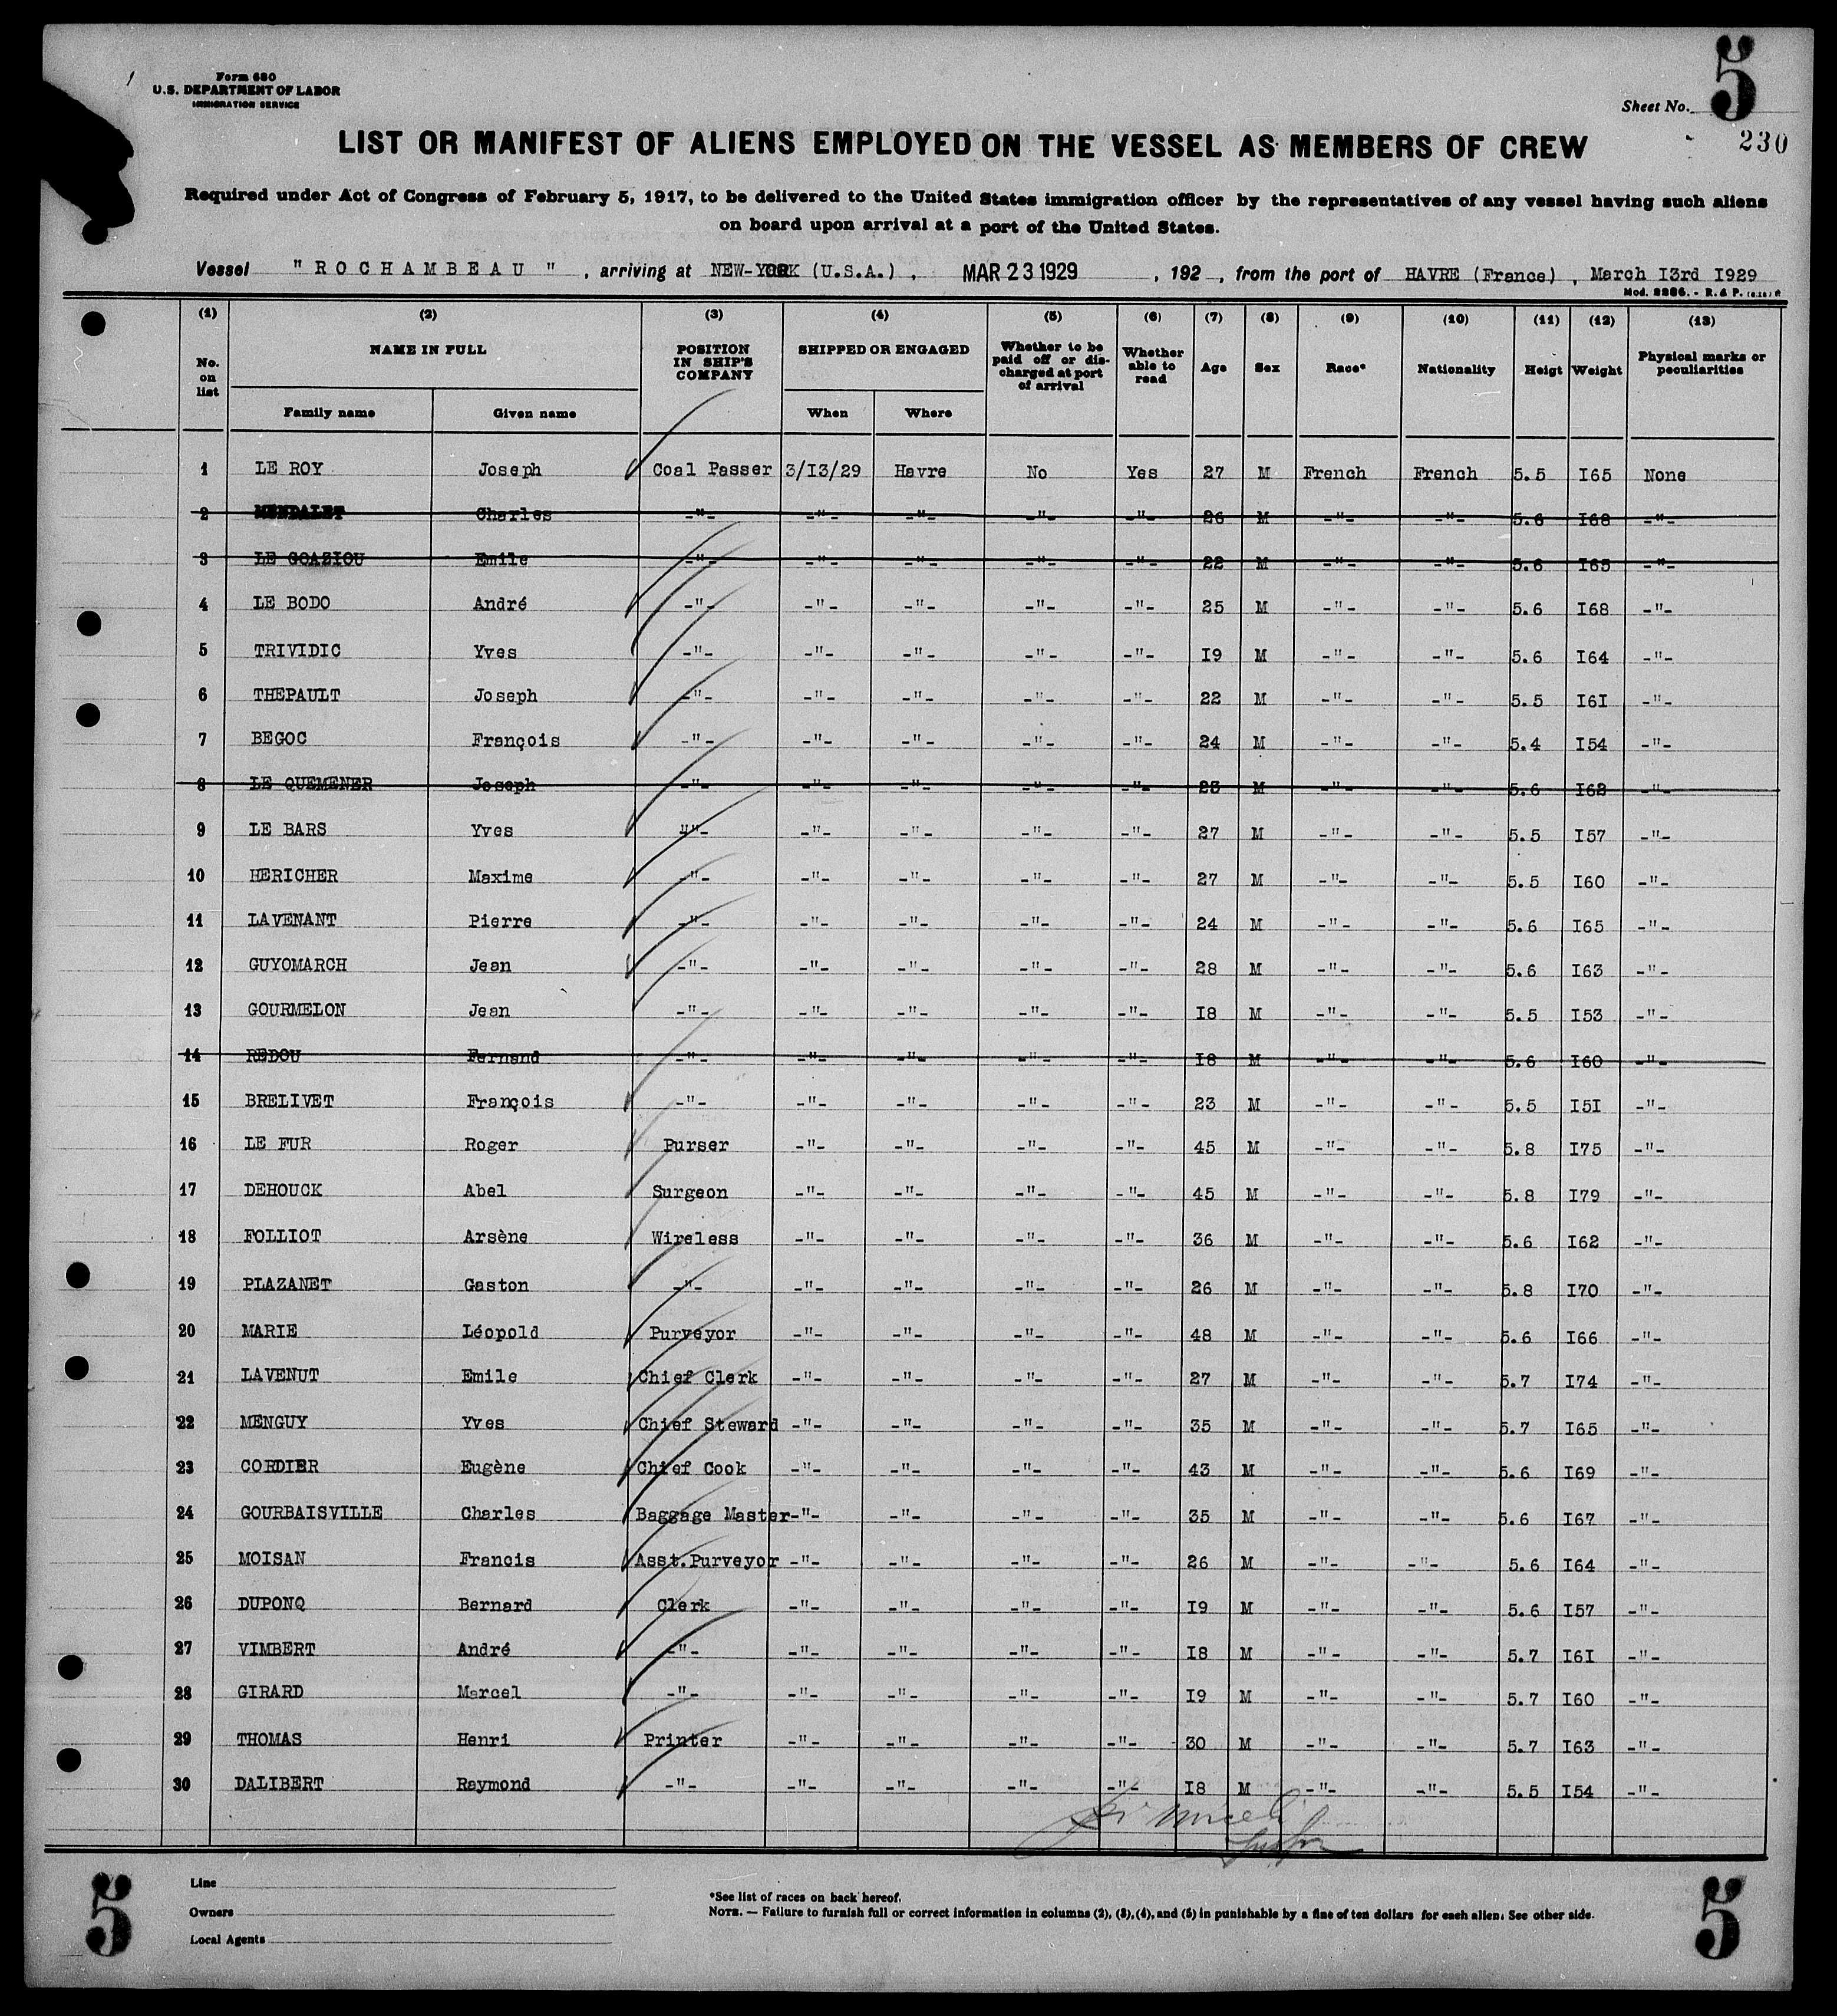 Form 680
U.S. DEPARTMENT OF LABOR
IMMIGRATION SERVICE
Sheet No. 5
230
LIST OR MANIFEST OF ALIENS EMPLOYED ON THE VESSEL AS MEMBERS OF CREW
Required under Act of Congress of February 5, 1917, to be delivered to the United States immigration officer by the representatives of any vessel having such aliens
on board upon arrival at a port of the United States.
Vessel "ROCHAMBEAU", arriving at NEW-YORK (U.S.A.), MAR 23 1929, 192 , from the port of HAVRE (France), March I3rd I929
Mod. 2286. - R. & P.
(1) (2) (3) (4) (5) (6) (7) (8) (9) (10) (11) (12) (13)
No. on list NAME IN FULL POSITION IN SHIP'S COMPANY SHIPPED OR ENGAGED Whether to be paid off or discharged at port of arrival Whether able to read Age Sex Race* Nationality Heigt Weight Physical marks or peculiarities
Family name Given name When Where
1 LE ROY Joseph Coal Passer 3/I3/29 Havre No Yes 27 M French French 5.5 I65 None
2 MENDALET Charles -"- -"- -"- -"- -"- 26 M -"- -"- 5.6 I68 -"-
3 LE GOAZIOU Emile -"- -"- -"- -"- -"- 22 M -"- -"- 5.6 I65 -"-
4 LE BODO André -"- -"- -"- -"- -"- 25 M -"- -"- 5.6 I68 -"-
5 TRIVIDIC Yves -"- -"- -"- -"- -"- I9 M -"- -"- 5.6 I64 -"-
6 THEPAULT Joseph -"- -"- -"- -"- -"- 22 M -"- -"- 5.5 I6I -"-
7 BEGOC François -"- -"- -"- -"- -"- 24 M -"- -"- 5.4 I54 -"-
8 LE QUEMENER Joseph -"- -"- -"- -"- -"- 23 M -"- -"- 5.6 I62 -"-
9 LE BARS Yves -"- -"- -"- -"- -"- 27 M -"- -"- 5.5 I57 -"-
10 HERICHER Maxime -"- -"- -"- -"- -"- 27 M -"- -"- 5.5 I60 -"-
11 LAVENANT Pierre -"- -"- -"- -"- -"- 24 M -"- -"- 5.6 I65 -"-
12 GUYOMARCH Jean -"- -"- -"- -"- -"- 28 M -"- -"- 5.6 I63 -"-
13 GOURMELON Jean -"- -"- -"- -"- -"- I8 M -"- -"- 5.5 I53 -"-
14 REDOU Fernand -"- -"- -"- -"- -"- I8 M -"- -"- 5.6 I60 -"-
15 BRELIVET François -"- -"- -"- -"- -"- 23 M -"- -"- 5.5 I5I -"-
16 LE FUR Roger Purser -"- -"- -"- -"- 45 M -"- -"- 5.8 I75 -"-
17 DEHOUCK Abel Surgeon -"- -"- -"- -"- 45 M -"- -"- 5.8 I79 -"-
18 FOLLIOT Arsène Wireless -"- -"- -"- -"- 36 M -"- -"- 5.6 I62 -"-
19 PLAZANET Gaston -"- -"- -"- -"- -"- 26 M -"- -"- 5.8 I70 -"-
20 MARIE Léopold Purveyor -"- -"- -"- -"- 48 M -"- -"- 5.6 I66 -"-
21 LAVENUT Emile Chief Clerk -"- -"- -"- -"- 27 M -"- -"- 5.7 I74 -"-
22 MENGUY Yves Chief Steward -"- -"- -"- -"- 35 M -"- -"- 5.7 I65 -"-
23 CORDIER Eugène Chief Cook -"- -"- -"- -"- 43 M -"- -"- 5.6 I69 -"-
24 GOURBAISVILLE Charles Baggage Master -"- -"- -"- -"- 35 M -"- -"- 5.6 I67 -"-
25 MOISAN Francis Asst.Purveyor -"- -"- -"- -"- 26 M -"- -"- 5.6 I64 -"-
26 DUPONQ Bernard Clerk -"- -"- -"- -"- I9 M -"- -"- 5.6 I57 -"-
27 VIMBERT André -"- -"- -"- -"- -"- I8 M -"- -"- 5.7 I6I -"-
28 GIRARD Marcel -"- -"- -"- -"- -"- I9 M -"- -"- 5.7 I60 -"-
29 THOMAS Henri Printer -"- -"- -"- -"- 30 M -"- -"- 5.7 I63 -"-
30 DALIBERT Raymond -"- -"- -"- -"- -"- I8 M -"- -"- 5.5 I54 -"-
5
Line
Owners
Local Agents
*See list of races on back hereof.
NOTE. — Failure to furnish full or correct information in columns (2), (3), (4), and (5) in punishable by a fine of ten dollars for each alien. See other side.
5